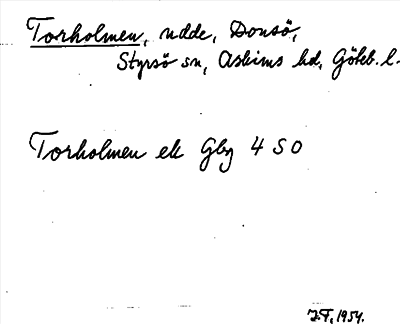 Torholmen, udde, Donsö,
Styrsö sn, Askims hd, Göteb. l.
Torholmen ek Gbg 4 SO
J.F, 1954.